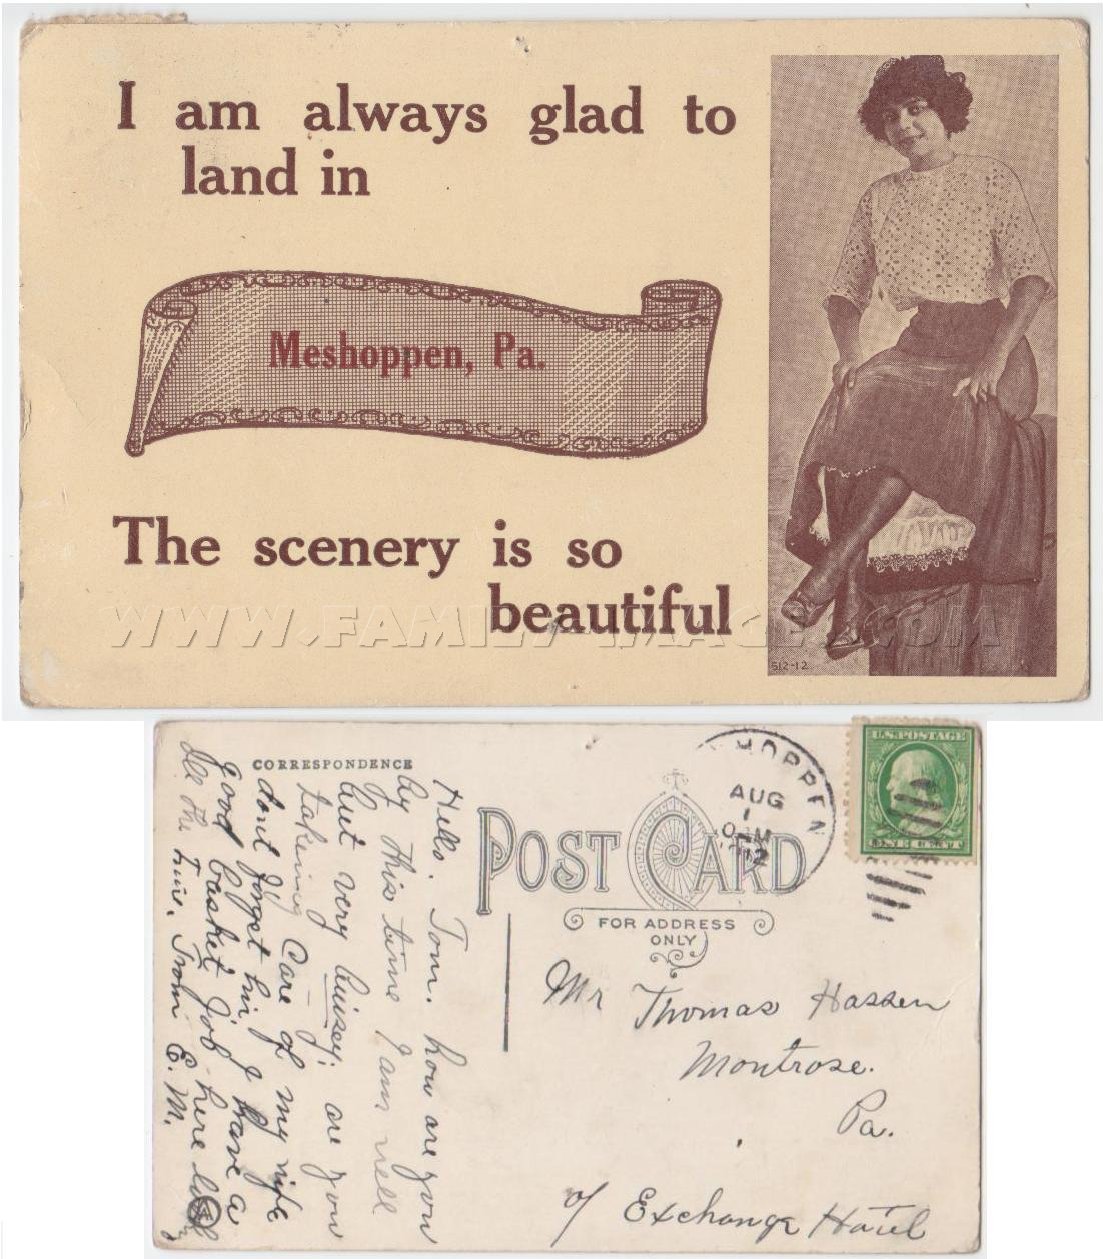 I am always glad to
land in
Meshoppen, Pa.
The scenery is so
beautiful
WWW.FAMILY-IMAGES.COM
512-12
CORRESPONDENCE
Hello. Tom. how are you
by this time I am well
but very buisey: are you
takeing Care of my wife
dont forget him I have a
good basket Job here
See the time. From E. M.
HOPPEN
AUG
1
1912
U.S. POSTAGE
ONE CENT
POST CARD
FOR ADDRESS
ONLY
Mr Thomas Hassen
Montrose.
Pa.
c/o Exchange Hotel